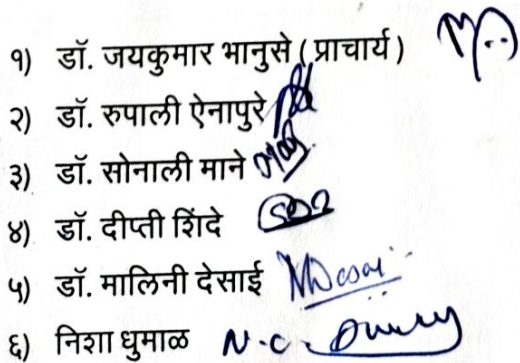 १) डॉ. जयकुमार भानुसे ( प्राचार्य )
२) डॉ. रुपाली ऐनापुरे
३) डॉ. सोनाली माने
४) डॉ. दीप्ती शिंदे
५) डॉ. मालिनी देसाई
६) निशा धुमाळ N.C.